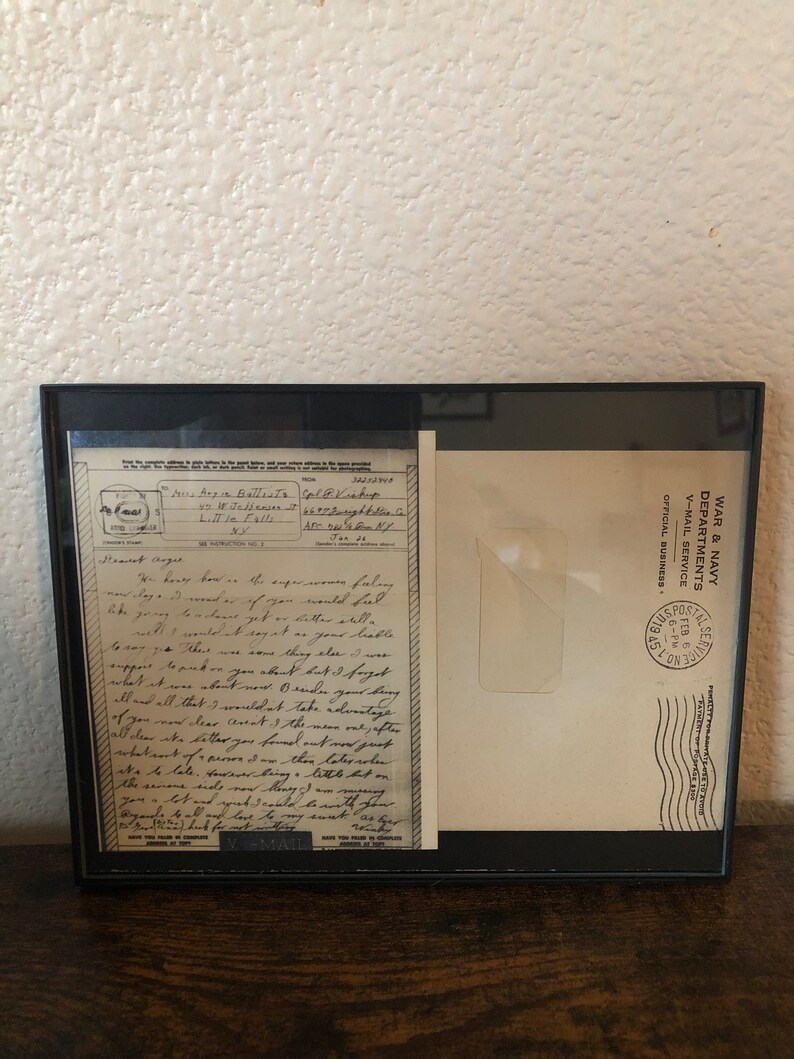 Print the complete address in plain letters in the panel below, and your return address in the space provided
on the right. Use typewriter, dark ink, or dark pencil. Faint or small writing is not suitable for photographing.
TO
Miss Angie Battista
47 W Jefferson St
Little Falls
NY
FROM
32252940
Cpl P. Vishup
APO NY
Jan 26
(Sender's complete address above)
(CENSOR'S STAMP)
SEE INSTRUCTION NO. 2
Dearest Angie
honey how is the super women feeling
now days. I wonder if you would feel
like going to a dance yet or better still a
well I wouldn't say it as your liable
to say yes There was some thing else I was
suppose to pick on you about but I forgot
what it was about now. Besides your being
ill and all that I wouldnt take advantage
of you now dear arent I the mean one, after
all dear its better you found out now just
what sort of a person I am than later when
its to late. However being a little bit on
the serious side now honey I am missing
you a lot and wish I could be with you.
Regards to all and love to my sweet as ever
heck for not writing
HAVE YOU FILLED IN COMPLETE
ADDRESS AT TOP?
V-MAIL
HAVE YOU FILLED IN COMPLETE
ADDRESS AT TOP?
WAR & NAVY
DEPARTMENTS
V-MAIL SERVICE
OFFICIAL BUSINESS
U.S. POSTAL SERVICE NO. 1
FEB 6
6-PM
1945
PENALTY FOR PRIVATE USE TO AVOID
PAYMENT OF POSTAGE $300